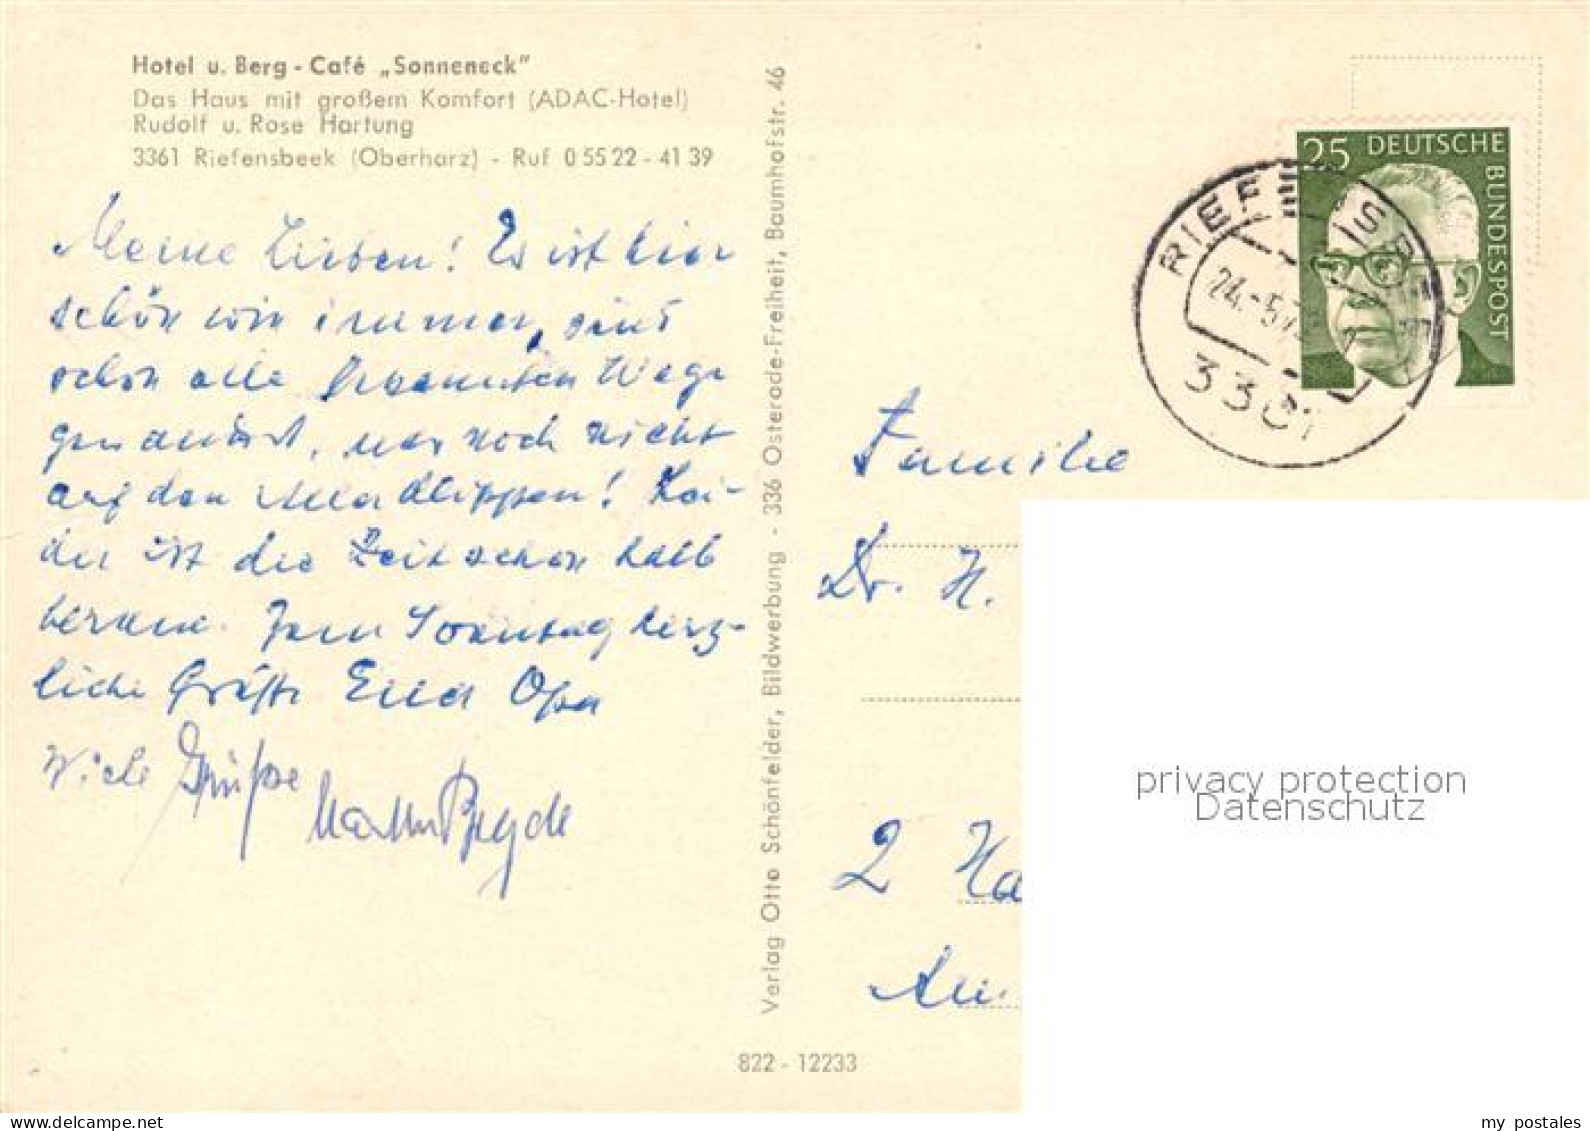 Hotel u. Berg - Café „Sonneneck"
Das Haus mit großem Komfort (ADAC-Hotel)
Rudolf u. Rose Hartung
3361 Riefensbeek (Oberharz) - Ruf 0 55 22 - 41 39
Meine Lieben! Es ist hier
schön wie immer, sind
schon alle bekannten Wege
gewandert, nur noch nicht
auf den! Lei-
der ist die Zeit schon halb
herum. Zum Sonntag herz-
liche Grüße Euer Opa
Viele Grüße
Verlag Otto Schönfelder, Bildwerbung - 336 Osterode-Freiheit, Baumhofstr. 46
822 - 12233
25 DEUTSCHE
BUNDESPOST
RIEF
24.-5.7
Familie
Dr. H.
2 Ha
privacy protection
Datenschutz
my postales